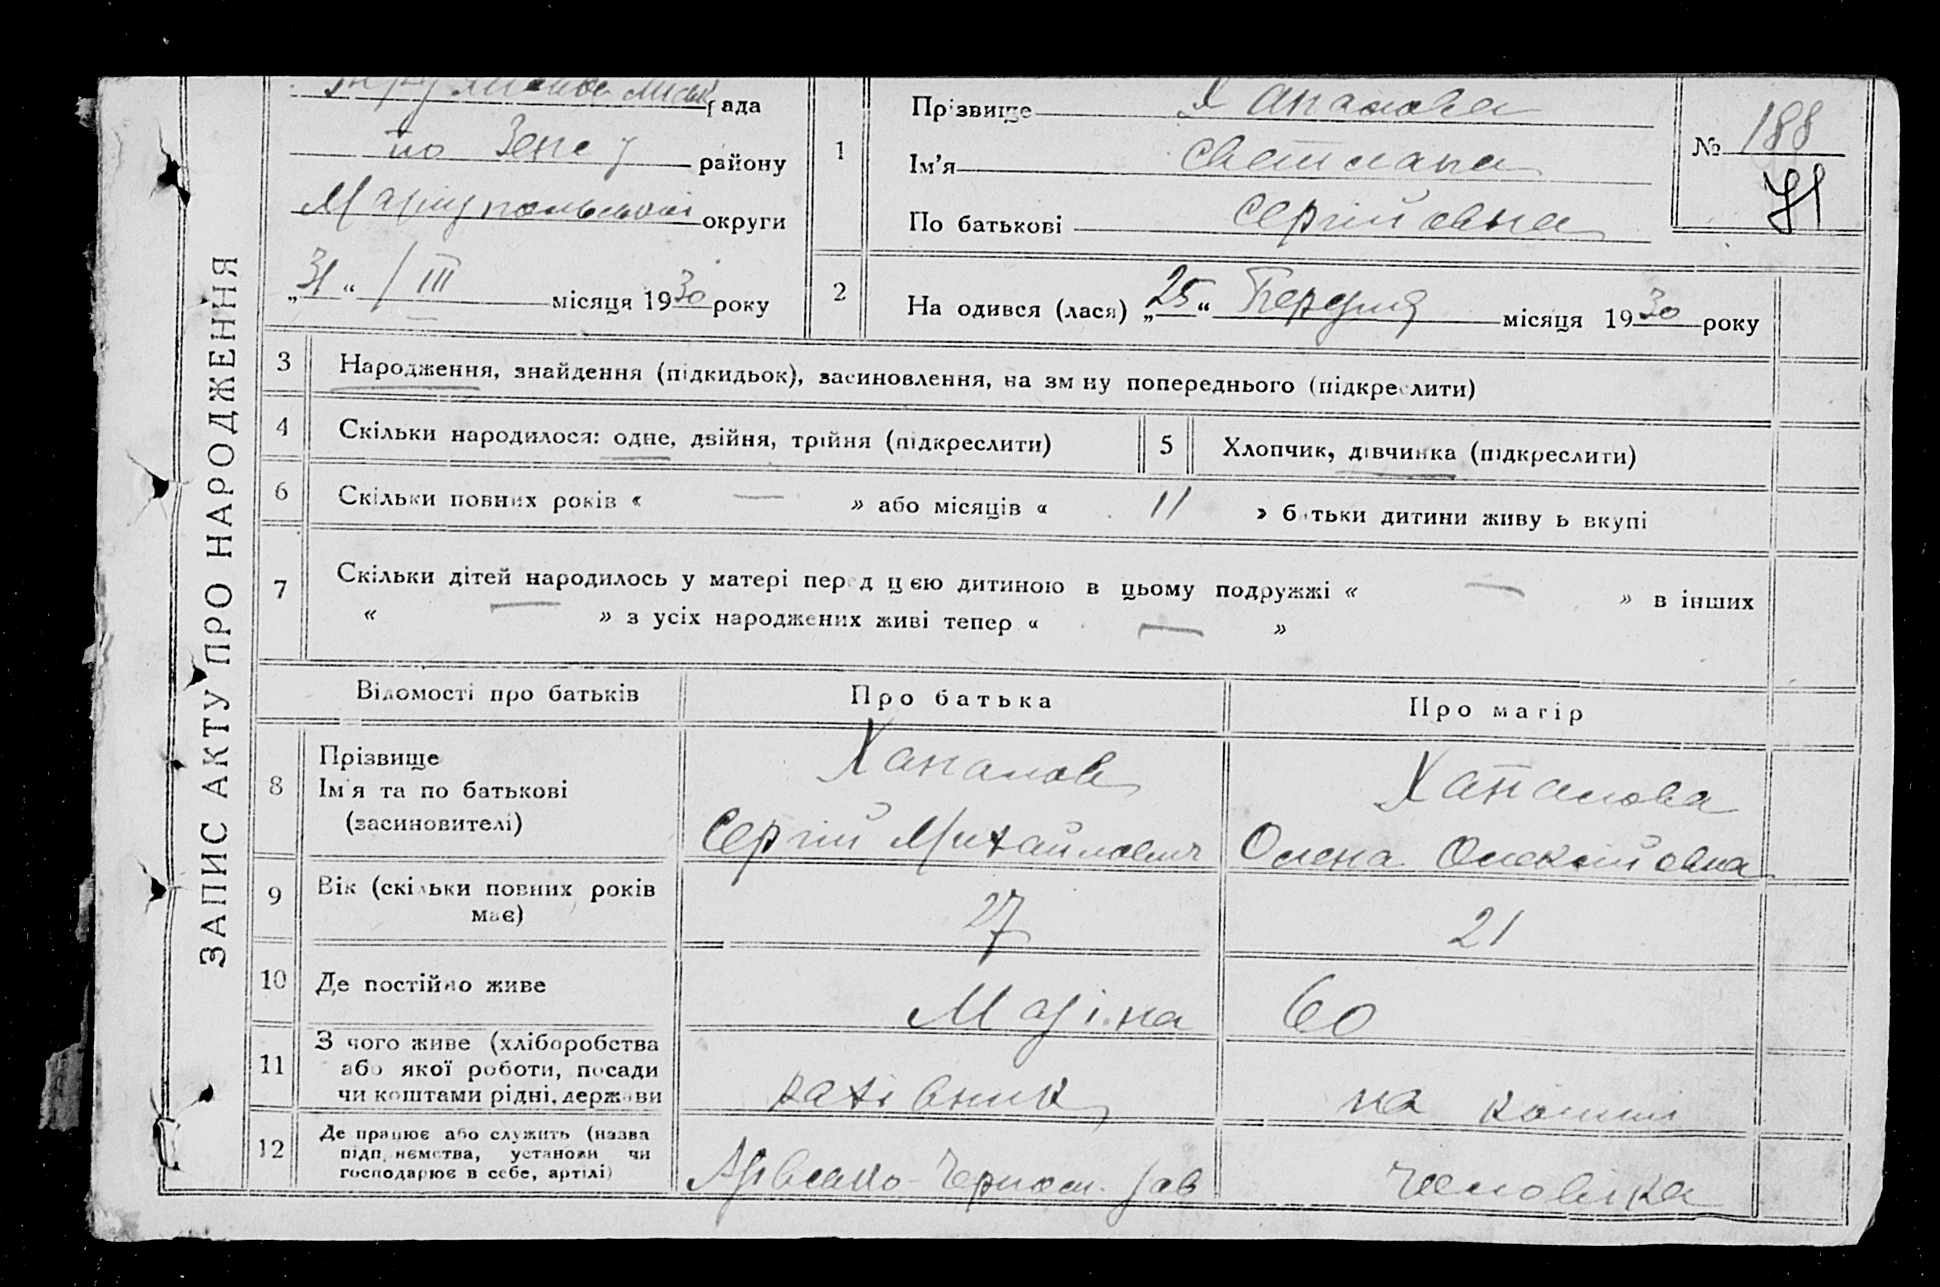 ЗАПИС АКТУ ПРО НАРОДЖЕННЯ
рада
по району
Маріупольської округи
„31“ / III місяця 1930 року
1
Прізвище Хапалова
Ім'я Светлана
По батькові Сергійовна
№ 188
71
2
На одився (лася) „25“ Березня місяця 1930 року
3 Народження, знайдення (підкидьок), засиновлення, на зм ну попереднього (підкреслити)
4 Скільки народилося: одне, двійня, трійня (підкреслити)
5 Хлопчик, дівчинка (підкреслити)
6 Скільки повних років « — » або місяців « 11 » батьки дитини живу ь вкупі
7 Скільки дітей народилось у матері перед цією дитиною в цьому подружжі « — » в інших
« — » з усіх народжених живі тепер « — »
Відомості про батьків Про батька Про матір
8 Прізвище
Ім'я та по батькові
(засиновителі)
Хапалов
Сергій Михайлович
Хапалова
Олена Олексійовна
9 Вік (скільки повних років
має)
27 21
10 Де постійно живе
11 З чого живе (хліборобства
або якої роботи, посади
чи коштами рідні, держави
рахівник на кошти
12 Де працює або служить (назва
підп. ємства, установи чи
господарює в себе, артілі)
чоловіка